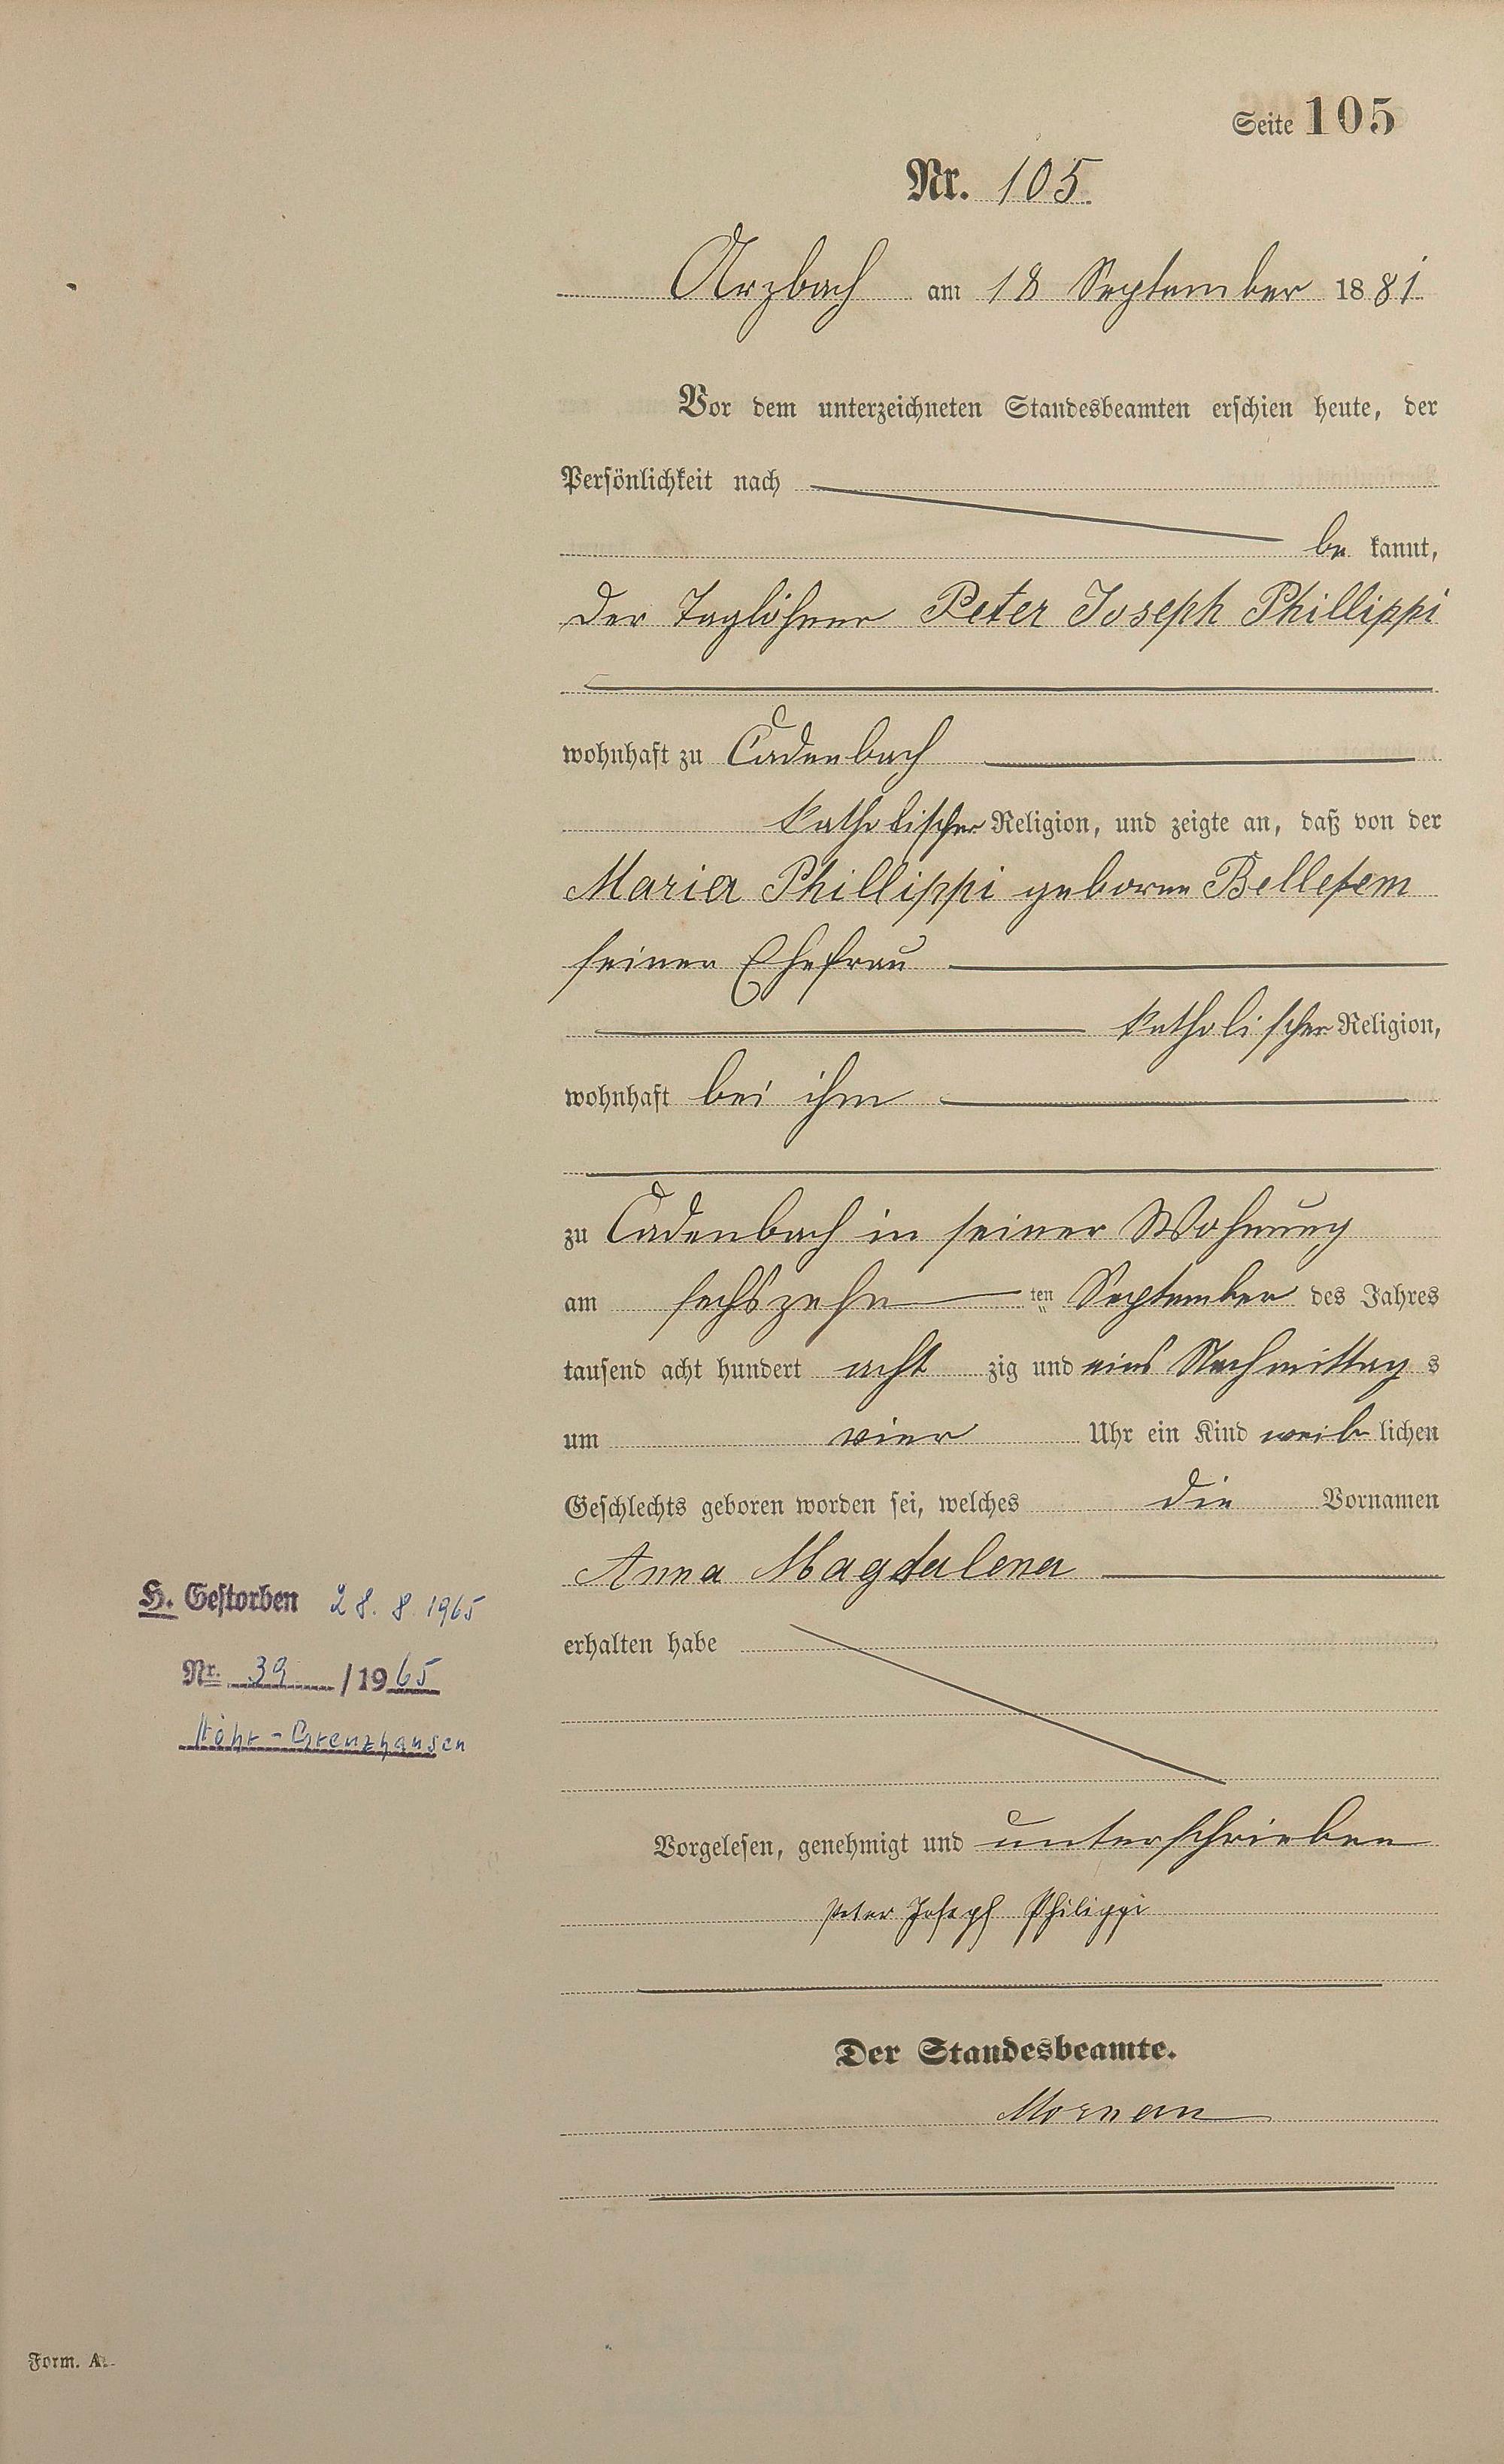 Seite 105
Nr. 105.
Arzbach am 18 September 1881
Vor dem unterzeichneten Standesbeamten erschien heute, der
Persönlichkeit nach
be kannt,
der Taglöhner Peter Joseph Phillippi
wohnhaft zu Cadenbach
katholischer Religion, und zeigte an, daß von der
Maria Phillippi geborne
seiner Ehefrau
katholischer Religion,
wohnhaft bei ihm
zu Cadenbach in seiner Wohnung
am sechszehn ten September des Jahres
tausend acht hundert acht zig und eins Nachmittag s
um vier Uhr ein Kind weib lichen
Geschlechts geboren worden sei, welches die Vornamen
Anna Magdalena
H. Gestorben 28.8.1965
Nr. 39 / 1965
Höhr-Grenzhausen
erhalten habe
Vorgelesen, genehmigt und unterschrieben
Peter Joseph Philippi
Der Standesbeamte.
Form. A.